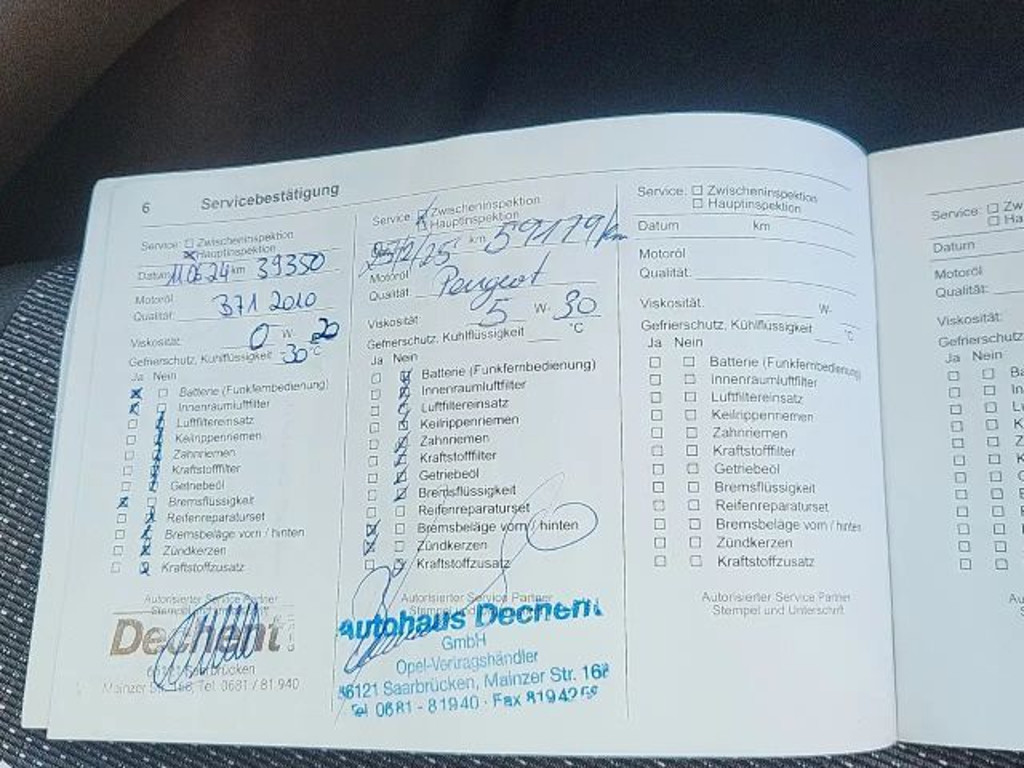 6 Servicebestätigung
Service: Zwischeninspektion
Hauptinspektion
Datum 11.06.24 km 39350
Motoröl
Qualität: B71 2010
Viskosität: 0 W- 20
Gefrierschutz, Kühlflüssigkeit -30 °C
Ja Nein
Batterie (Funkfernbedienung)
Innenraumluftfilter
Luftfiltereinsatz
Keilrippenriemen
Zahnriemen
Kraftstofffilter
Getriebeöl
Bremsflüssigkeit
Reifenreparaturset
Bremsbeläge vorn / hinten
Zündkerzen
Kraftstoffzusatz
Autorisierter Service Partner
Dechent
66121 Saarbrücken
Mainzer Str. 168, Tel. 0681 / 81 940
Service: Zwischeninspektion
Hauptinspektion
km 59179 km
Motoröl
Qualität: Peugeot
Viskosität: 5 W- 30
Gefrierschutz, Kühlflüssigkeit °C
Ja Nein
Batterie (Funkfernbedienung)
Innenraumluftfilter
Luftfiltereinsatz
Keilrippenriemen
Zahnriemen
Kraftstofffilter
Getriebeöl
Bremsflüssigkeit
Reifenreparaturset
Bremsbeläge vorn / hinten
Zündkerzen
Kraftstoffzusatz
Autorisierter Service Partner
Autohaus Dechent
GmbH
Opel-Vertragshändler
66121 Saarbrücken, Mainzer Str. 168
Tel. 0681 - 81940 · Fax
Service: Zwischeninspektion
Hauptinspektion
Datum km
Motoröl
Qualität:
Viskosität: W-
Gefrierschutz, Kühlflüssigkeit °C
Ja Nein
Batterie (Funkfernbedienung)
Innenraumluftfilter
Luftfiltereinsatz
Keilrippenriemen
Zahnriemen
Kraftstofffilter
Getriebeöl
Bremsflüssigkeit
Reifenreparaturset
Bremsbeläge vorn / hinten
Zündkerzen
Kraftstoffzusatz
Autorisierter Service Partner
Stempel und Unterschrift
Service: Zw
Ha
Datum
Motoröl
Qualität:
Viskosität:
Gefrierschutz
Ja Nein